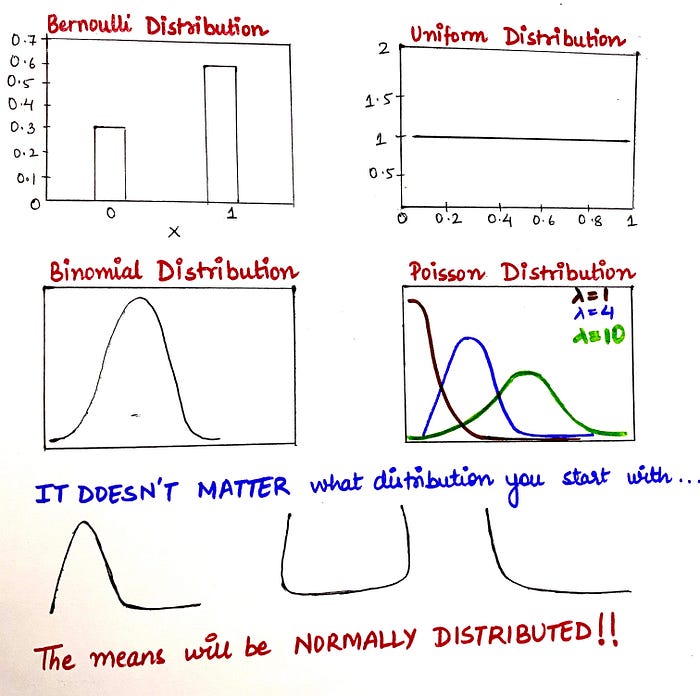 Bernoulli Distribution
0.7
0.6
0.5
0.4
0.3
0.2
0.1
0
0 1
X
Uniform Distribution
2
1.5
1
0.5
0 0.2 0.4 0.6 0.8 1
Binomial Distribution
Poisson Distribution
λ=1
λ=4
λ=10
IT DOESN'T MATTER what distribution you start with...
The means will be NORMALLY DISTRIBUTED!!